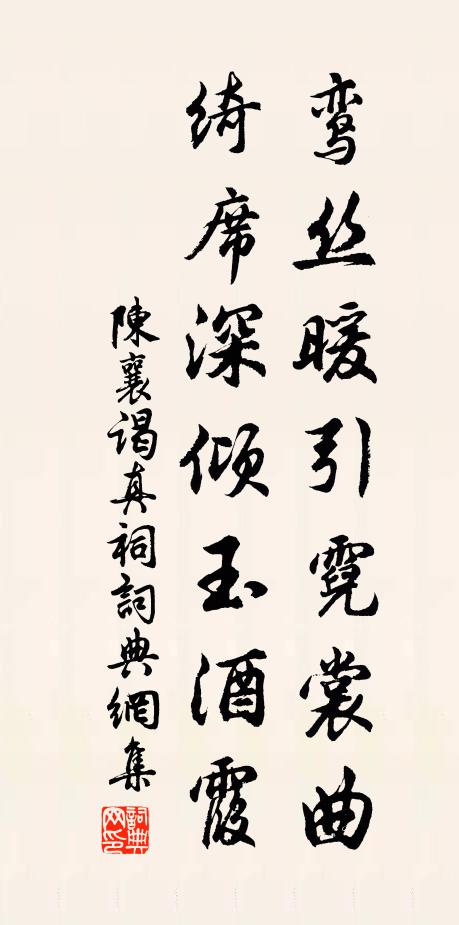 鸾丝暖引霓裳曲
绮席深倾玉酒霞
陳襄谒真祠詞典網集
詞典網印